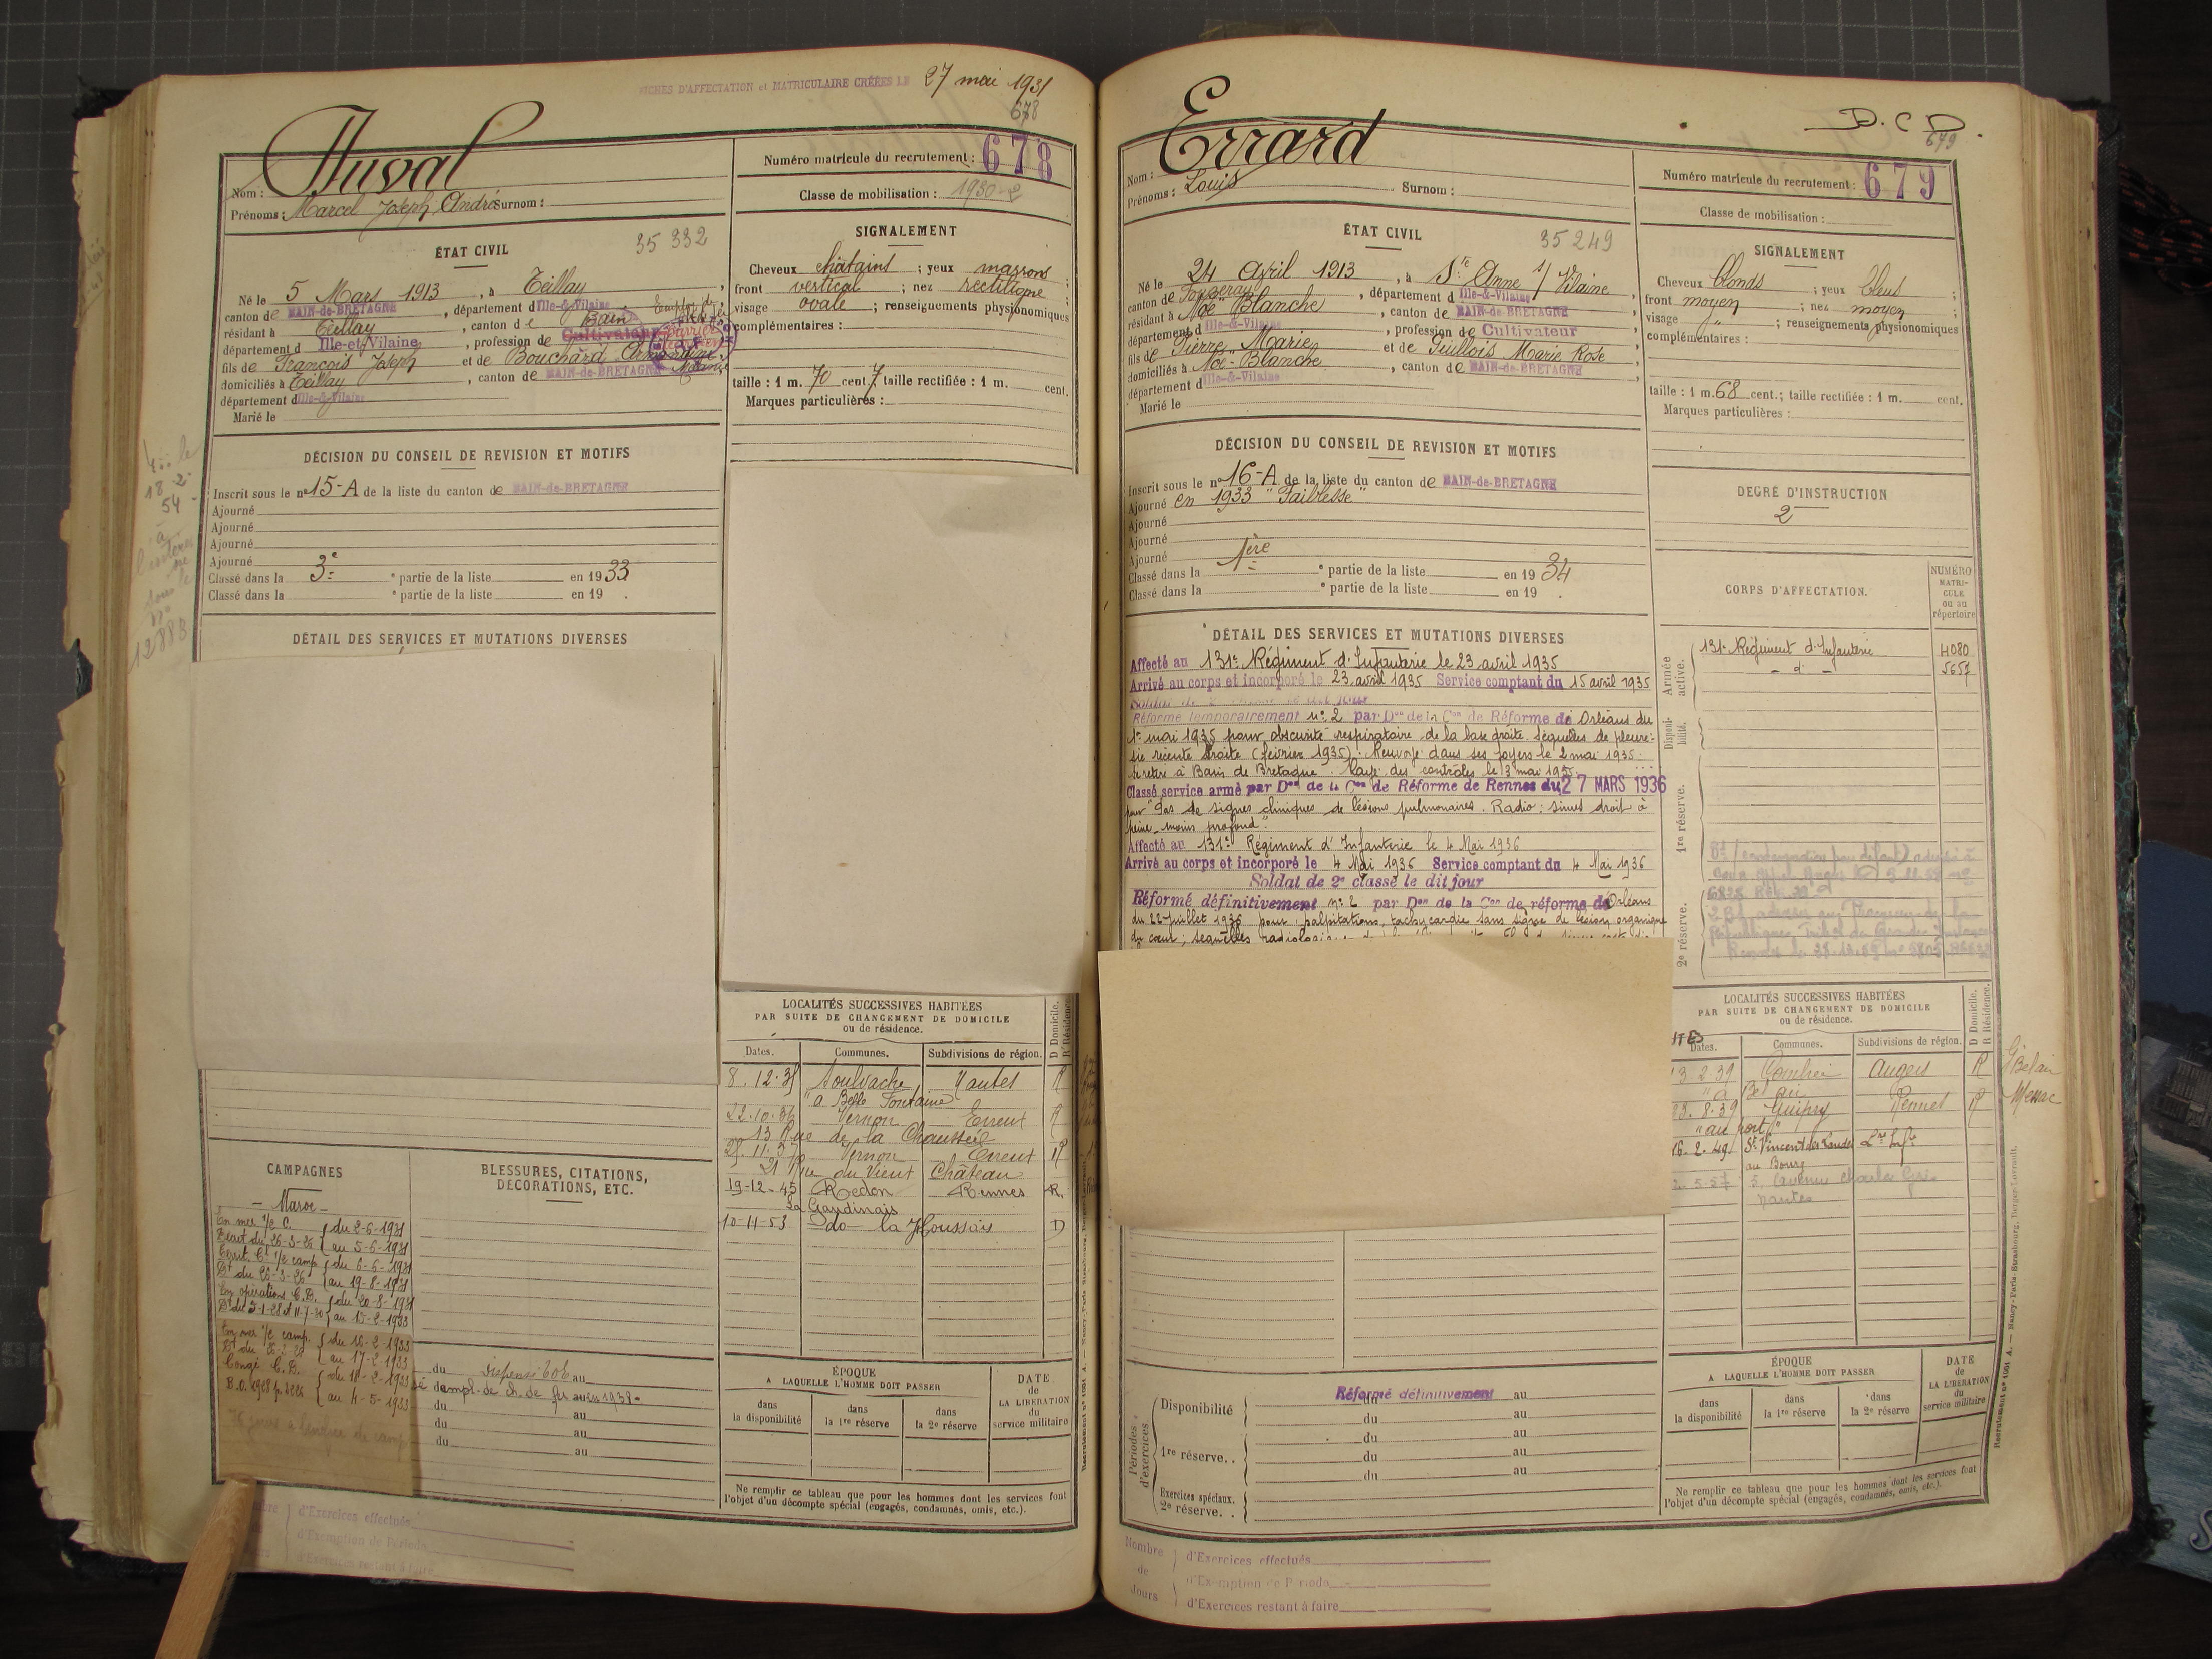 FICHES D'AFFECTATION et MATRICULAIRE CRÉÉES LE 27 mai 1931
678
Nom : Duval
Prénoms : Marcel Joseph André Surnom :
Numéro matricule du recrutement : 678
Classe de mobilisation : 1930-2
ÉTAT CIVIL
35 332
Né le 5 Mars 1913, à Teillay
canton de BAIN-DE-BRETAGNE, département d Ille-&-Vilaine
résidant à Teillay, canton de Bain
département d Ille-et-Vilaine, profession de Cultivateur
fils de François Joseph et de Bouchard
domiciliés à Teillay, canton de BAIN-DE-BRETAGNE
département d Ille-&-Vilaine
Marié le
SIGNALEMENT
Cheveux châtains ; yeux marrons ;
front vertical ; nez rectiligne ;
visage ovale ; renseignements physionomiques
complémentaires :
taille : 1 m. 70 cent. 7 taille rectifiée : 1 m. cent.
Marques particulières :
DÉCISION DU CONSEIL DE REVISION ET MOTIFS
Inscrit sous le n° 15-A de la liste du canton de BAIN-de-BRETAGNE
Ajourné
Ajourné
Ajourné
Ajourné
Classé dans la 3e partie de la liste en 1933
Classé dans la e partie de la liste en 19 .
18-2-
54
12883
DÉTAIL DES SERVICES ET MUTATIONS DIVERSES
LOCALITÉS SUCCESSIVES HABITÉES
PAR SUITE DE CHANGEMENT DE DOMICILE
ou de résidence.
D Domicile.
R Résidence.
Dates. Communes. Subdivisions de région.
8.12.35 Soulvache Nantes R
"a Belle Fontaine
22.10.36 Vernon Evreux R
13 Rue de la Chaussée
25.11.37 Vernon Evreux R
21 Rue du Vieux Château
19-12-45 Redon Rennes R.
La Gaudinais
10-11-53 do la Houssais D
CAMPAGNES
- Maroc -
En mer 1/2 C. du 2-6-1931
Décret du 26-3-26 au 5-6-1931
du 6-6-1931
Dt du 26-3-26 au 19-8-1931
En opérations C.D. du 20-8-1931
au 15-2-1933
En mer 1/2 camp. du 16-2-1933
au 17-2-1933
Congé C.D. du 18-2-1933
B.O. 1928 p. au 4-5-1933
BLESSURES, CITATIONS,
DÉCORATIONS, ETC.
du Dispensé au
empl. de ch. de fer au en 1938-
du au
du au
du au
ÉPOQUE
A LAQUELLE L'HOMME DOIT PASSER
dans la disponibilité
dans la 1re réserve
dans la 2e réserve
DATE de LA LIBÉRATION du service militaire
Ne remplir ce tableau que pour les hommes dont les services font
l'objet d'un décompte spécial (engagés, condamnés, omis, etc.).
d'Exercices effectués
d'Exemption de Période
d'Exercices restant à faire
D.C.D.
679
Nom : Errard
Prénoms : Louis Surnom :
Numéro matricule du recrutement : 679
Classe de mobilisation :
ÉTAT CIVIL
35 249
Né le 24 Avril 1913, à Ste Anne s/ Vilaine
canton de Fougeray, département d Ille-&-Vilaine
résidant à Noë Blanche, canton de BAIN-DE-BRETAGNE
département d Ille-&-Vilaine, profession de Cultivateur
fils de Pierre Marie et de Guillois Marie Rose
domiciliés à Noë Blanche, canton de BAIN-DE-BRETAGNE
département d Ille-&-Vilaine
Marié le
SIGNALEMENT
Cheveux blonds ; yeux bleus ;
front moyen ; nez moyen ;
visage " ; renseignements physionomiques
complémentaires :
taille : 1 m. 68 cent. ; taille rectifiée : 1 m. cent.
Marques particulières :
DÉCISION DU CONSEIL DE REVISION ET MOTIFS
Inscrit sous le n° 16-A de la liste du canton de BAIN-de-BRETAGNE
Ajourné en 1933 "Faiblesse"
Ajourné
Ajourné
Ajourné
Classé dans la 1ère partie de la liste en 1934
Classé dans la e partie de la liste en 19 .
DEGRÉ D'INSTRUCTION
2
CORPS D'AFFECTATION.
NUMÉRO MATRICULE ou au répertoire
Armée active.
131e Régiment d'Infanterie 4080
- d° - 5657
Disponibilité.
1re réserve.
2e réserve.
DÉTAIL DES SERVICES ET MUTATIONS DIVERSES
Affecté au 131e Régiment d'Infanterie le 23 avril 1935
Arrivé au corps et incorporé le 23 avril 1935 Service comptant du 15 avril 1935
Soldat de 2e classe le dit jour
Réformé temporairement n° 2 par Don de la Con de Réforme de Orléans du
1er mai 1935 pour obscurité respiratoire de la base droite. Séquelles de pleuré-
sie récente droite (février 1935). Renvoyé dans ses foyers le 2 mai 1935.
Se retire à Bain de Bretagne. Rayé des contrôles le 3 mai 1935.
Classé service armé par Don de la Con de Réforme de Rennes du 27 MARS 1936
pour "Pas de signes cliniques de lésions pulmonaires. Radio : sinus droit à
peine moins profond".
Affecté au 131e Régiment d'Infanterie le 4 Mai 1936
Arrivé au corps et incorporé le 4 Mai 1936 Service comptant du 4 Mai 1936
Soldat de 2e classe le dit jour
Réformé définitivement n° 2 par Don de la Con de réforme de Orléans
du 22 juillet 1936 pour palpitations, tachycardie sans signe de lésion organique
du cœur ; séquelles
LOCALITÉS SUCCESSIVES HABITÉES
PAR SUITE DE CHANGEMENT DE DOMICILE
ou de résidence.
D Domicile.
R Résidence.
Dates. Communes. Subdivisions de région.
3 2-39 Combrée Angers R
"à Bel air
20. 8.39 Guipry Rennes R
"au port"
16.2.49 St Vincent des Landes Lre Infre
au Bourg
5-57 5, Avenue Charles
Nantes
Messac
Disponibilité Réformé définitivement du au
du au
du au
1re réserve. . du au
du au
Périodes d'exercices
Exercices spéciaux.
2e réserve. .
ÉPOQUE
A LAQUELLE L'HOMME DOIT PASSER
dans la disponibilité
dans la 1re réserve
dans la 2e réserve
DATE de LA LIBÉRATION du service militaire
Ne remplir ce tableau que pour les hommes dont les services font
l'objet d'un décompte spécial (engagés, condamnés, omis, etc.).
Nombre de Jours
d'Exercices effectués
d'Exemption de Période
d'Exercices restant à faire